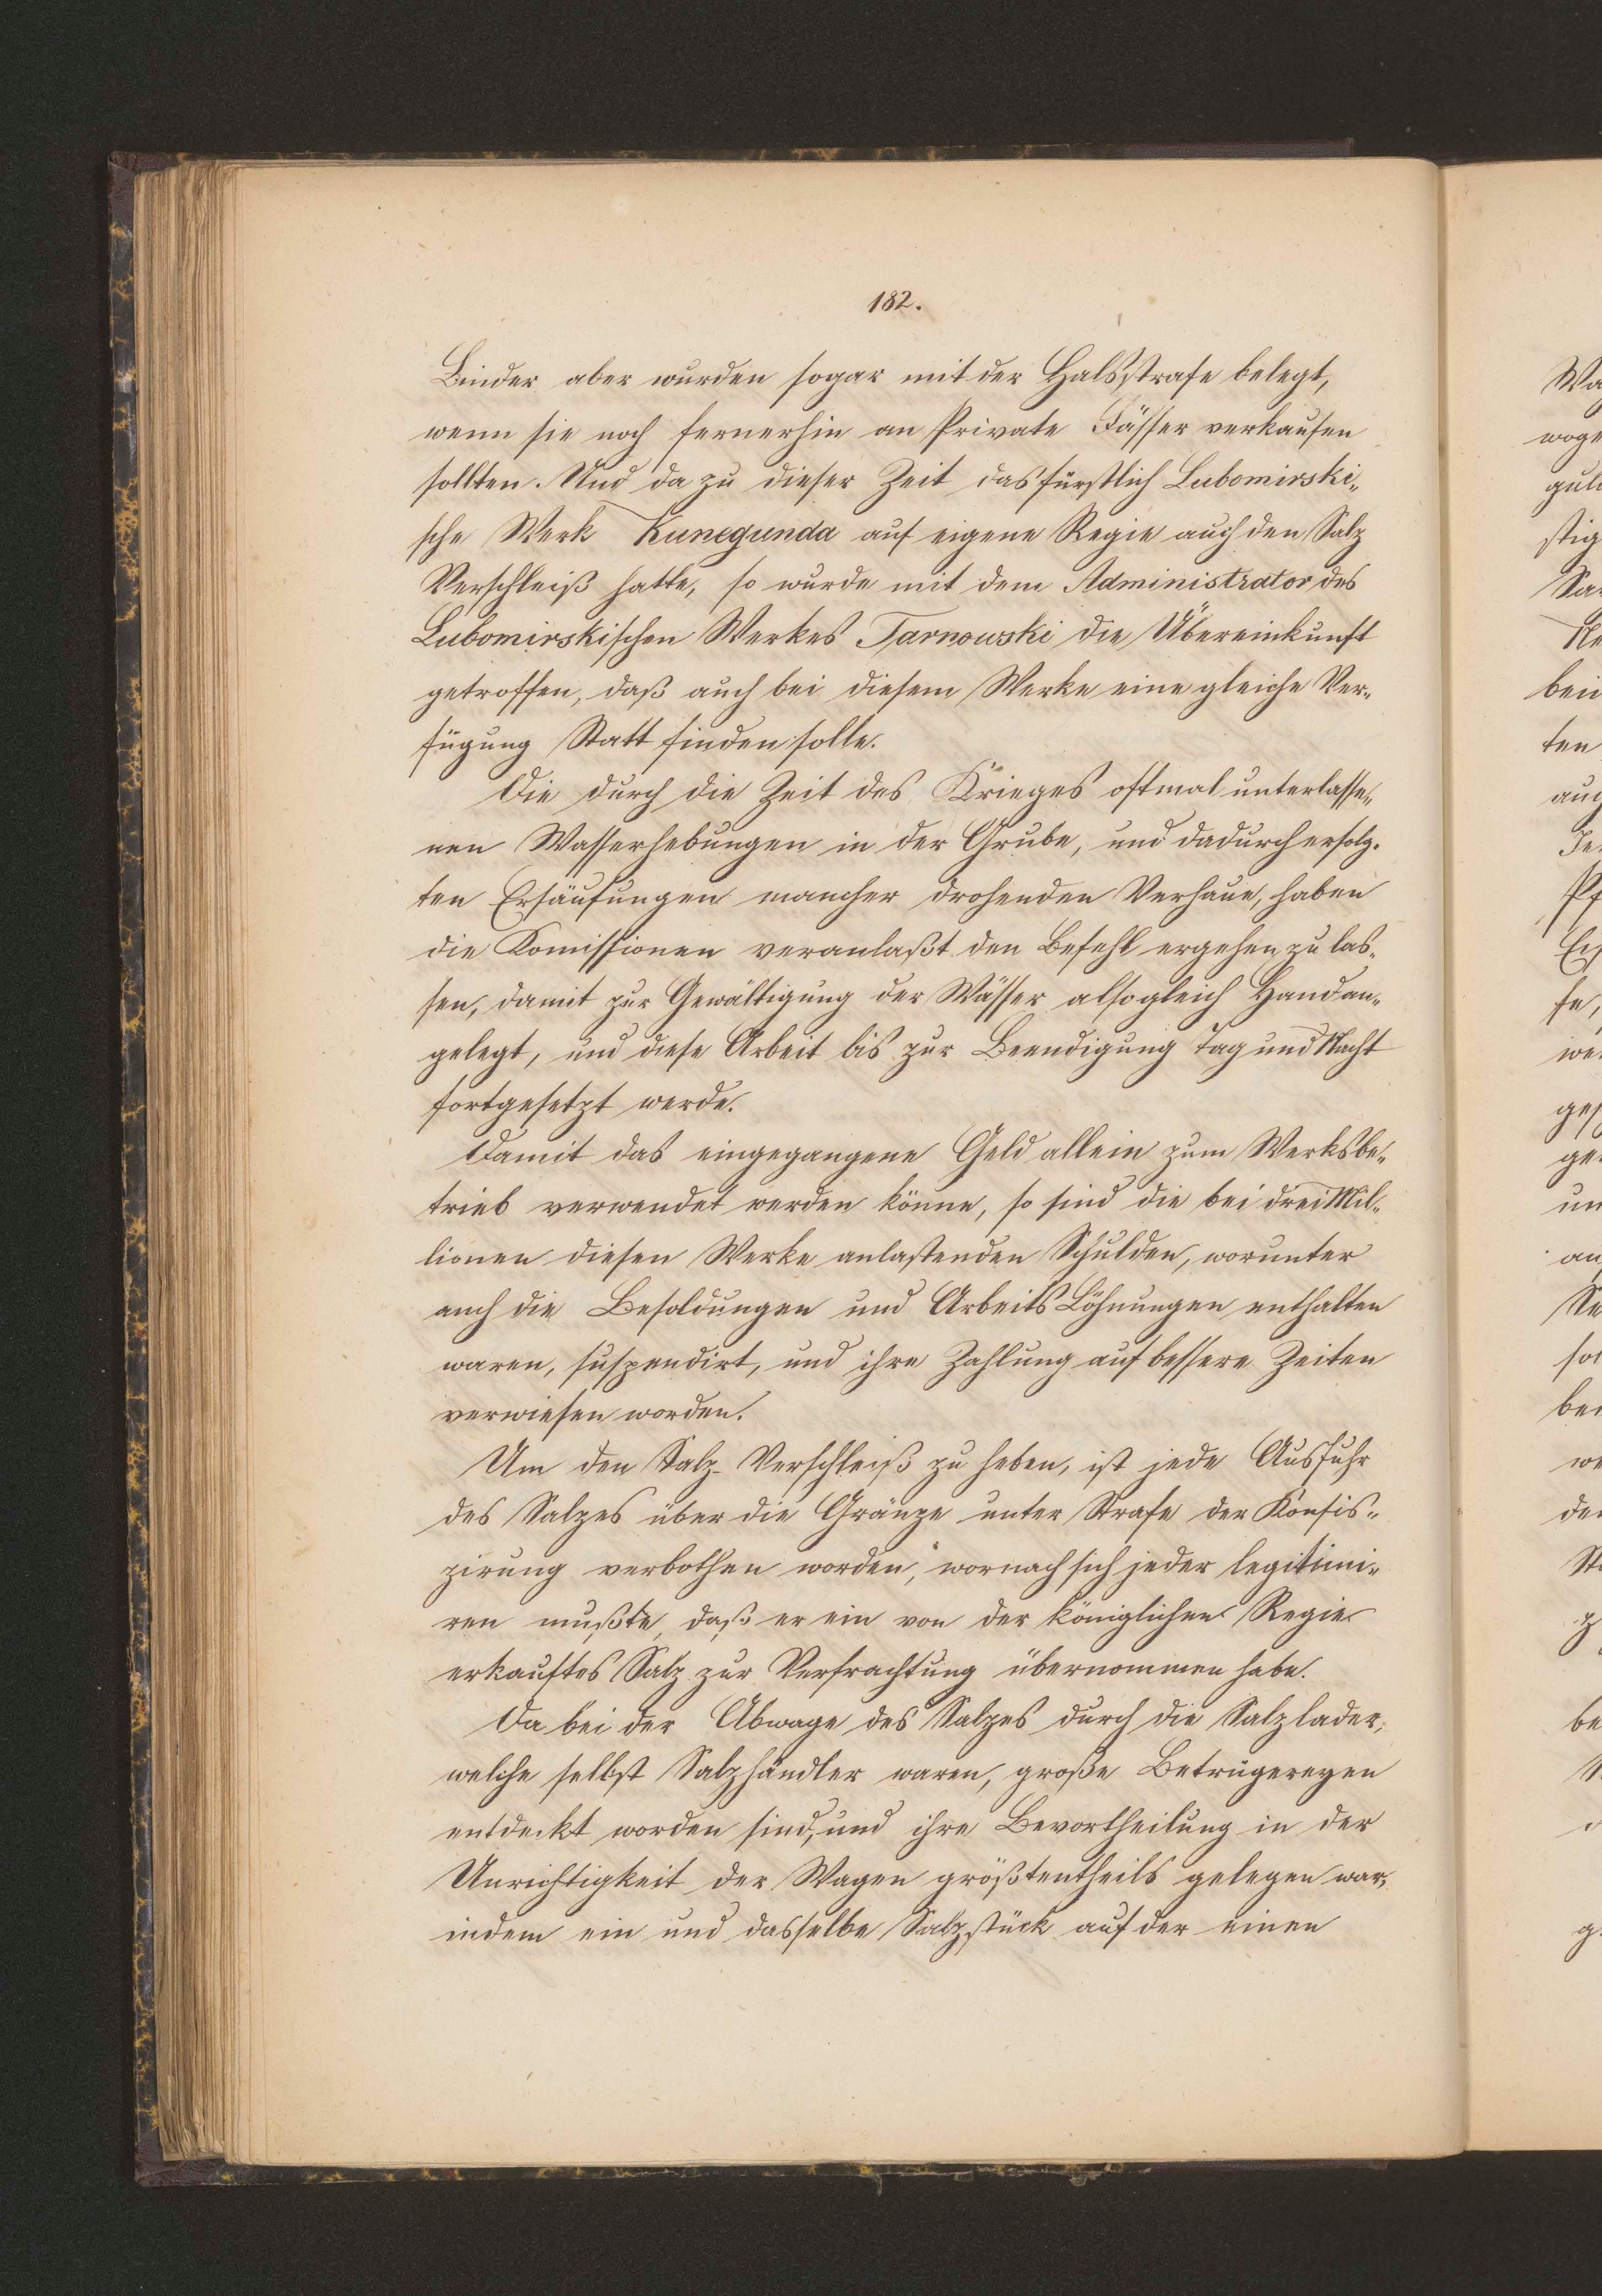 182.
Binder aber wurden sogar mit der Halsstrafe belegt,
wenn sie noch fernerhin an Private Fässer verkaufen
sollten. Und da zu dieser Zeit das fürstlich Lubomirski„
sche Werk Kunegunda auf eigene Regie auch den Salz
Verschleiß hatte, so wurde mit dem Administrator des
Lubomirskischen Werkes Tarnowski die Übereinkunft
getroffen, daß auch bei diesem Werke eine gleiche Ver„
fügung Statt finden solle.
Die durch die Zeit des Krieges oftmal unterlasse„
nen Wasserhebungen in der Grube, und dadurch erfolg„
ten Ersäufungen mancher drohenden Verhaue, haben
die Komissionen veranlaßt den Befehl ergehen zu las„
sen, damit zur Gewältigung der Wässer alsogleich Hand an„
gelegt, und diese Arbeit bis zur Beendigung Tag und Nacht
fortgesetzt werde.
Damit das eingegangene Geld allein zum Werksbe„
trieb verwendet werden könne, so sind die bei drei Mil„
lionen diesen Werke anlastenden Schulden, worunter
auch die Besoldungen und Arbeits Löhnungen enthalten
waren, suspendirt, und ihre Zahlung auf bessere Zeiten
verwiesen worden.
Um den Salz-Verschleiß zu heben, ist jede Ausfuhr
des Salzes über die Gränze unter Strafe der Konfis„
zirung verbothen worden, wornach sich jeder legitimi„
ren mußte, daß er ein von der königlichen Regie
erkauftes Salz zur Verfrachtung übernommen habe.
Da bei der Abwage des Salzes durch die Salzlader,
welche selbst Salzhändler waren, große Betrügereyen
entdeckt worden sind, und ihre Bevortheilung in der
Unrichtigkeit der Wagen größtentheils gelegen war,
indem ein und dasselbe Salzstück auf der einen